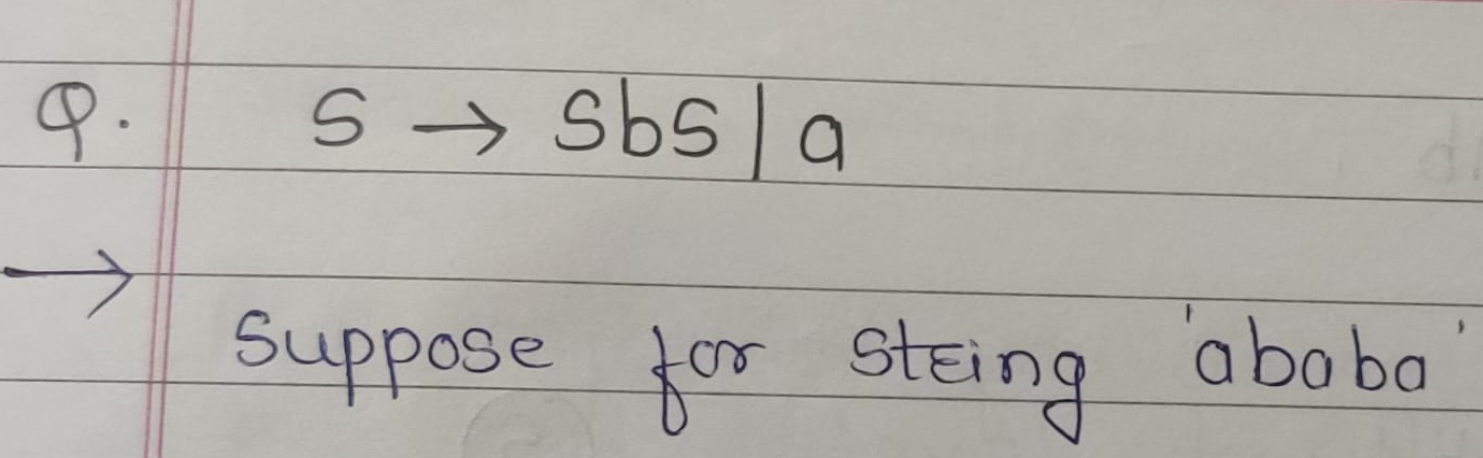 Q. S → SbS | a
→
Suppose for string 'ababa'